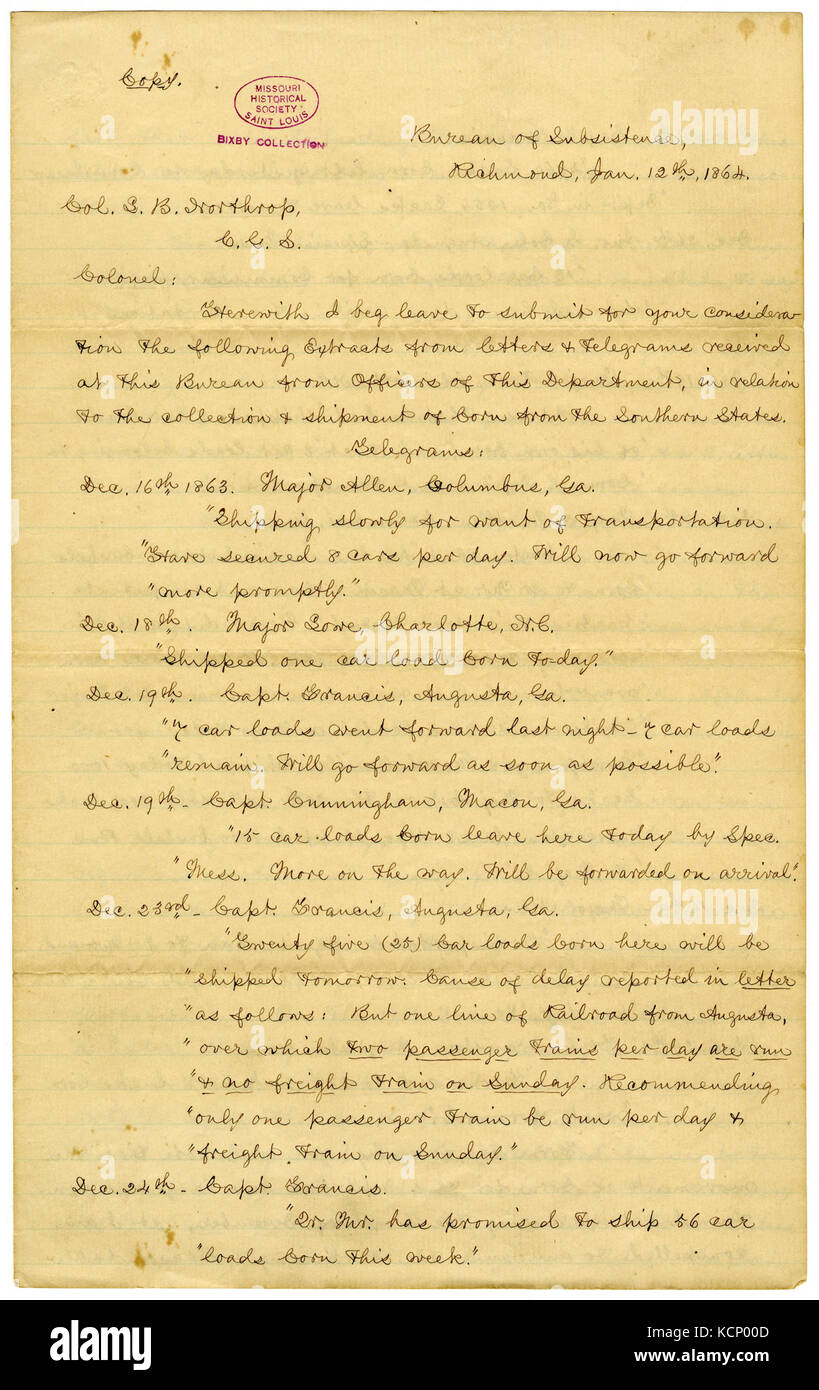 Copy.
MISSOURI
HISTORICAL
SOCIETY
SAINT LOUIS
BIXBY COLLECTION
Bureau of Subsistence,
Richmond, Jan. 12th, 1864.
Col. L. B. Northrop,
C. G. S.
Colonel:
Herewith I beg leave to submit for your considera-
tion the following Extracts from letters & telegrams received
at this Bureau from Officers of this Department, in relation
to the collection & shipment of Corn from the Southern States.
Telegrams:
Dec. 16th 1863. Major Allen, Columbus, Ga.
"Shipping slowly for want of transportation.
"Have secured 8 cars per day. Will now go forward
"more promptly."
Dec. 18th. Major Lowe, Charlotte, N.C.
"Shipped one car load Corn to-day."
Dec. 19th. Capt. Francis, Augusta, Ga.
"7 car loads went forward last night - 7 car loads
"remain. Will go forward as soon as possible".
Dec. 19th - Capt. Cunningham, Macon, Ga.
"15 car loads Corn leave here today by Spec.
"Mess. More on the way. Will be forwarded on arrival".
Dec. 23rd - Capt. Francis, Augusta, Ga.
"Twenty five (25) Car loads Corn here will be
"shipped tomorrow. Cause of delay reported in letter
"as follows: But one line of Railroad from Augusta,
"over which two passenger trains per day are run
"& no freight train on Sunday. Recommending
"only one passenger train be run per day &
"freight train on Sunday."
Dec. 24th - Capt. Francis.
"Qr. Mr. has promised to ship 56 car
"loads Corn this week."
alamy
alamy
Image ID: KCP00D
www.alamy.com